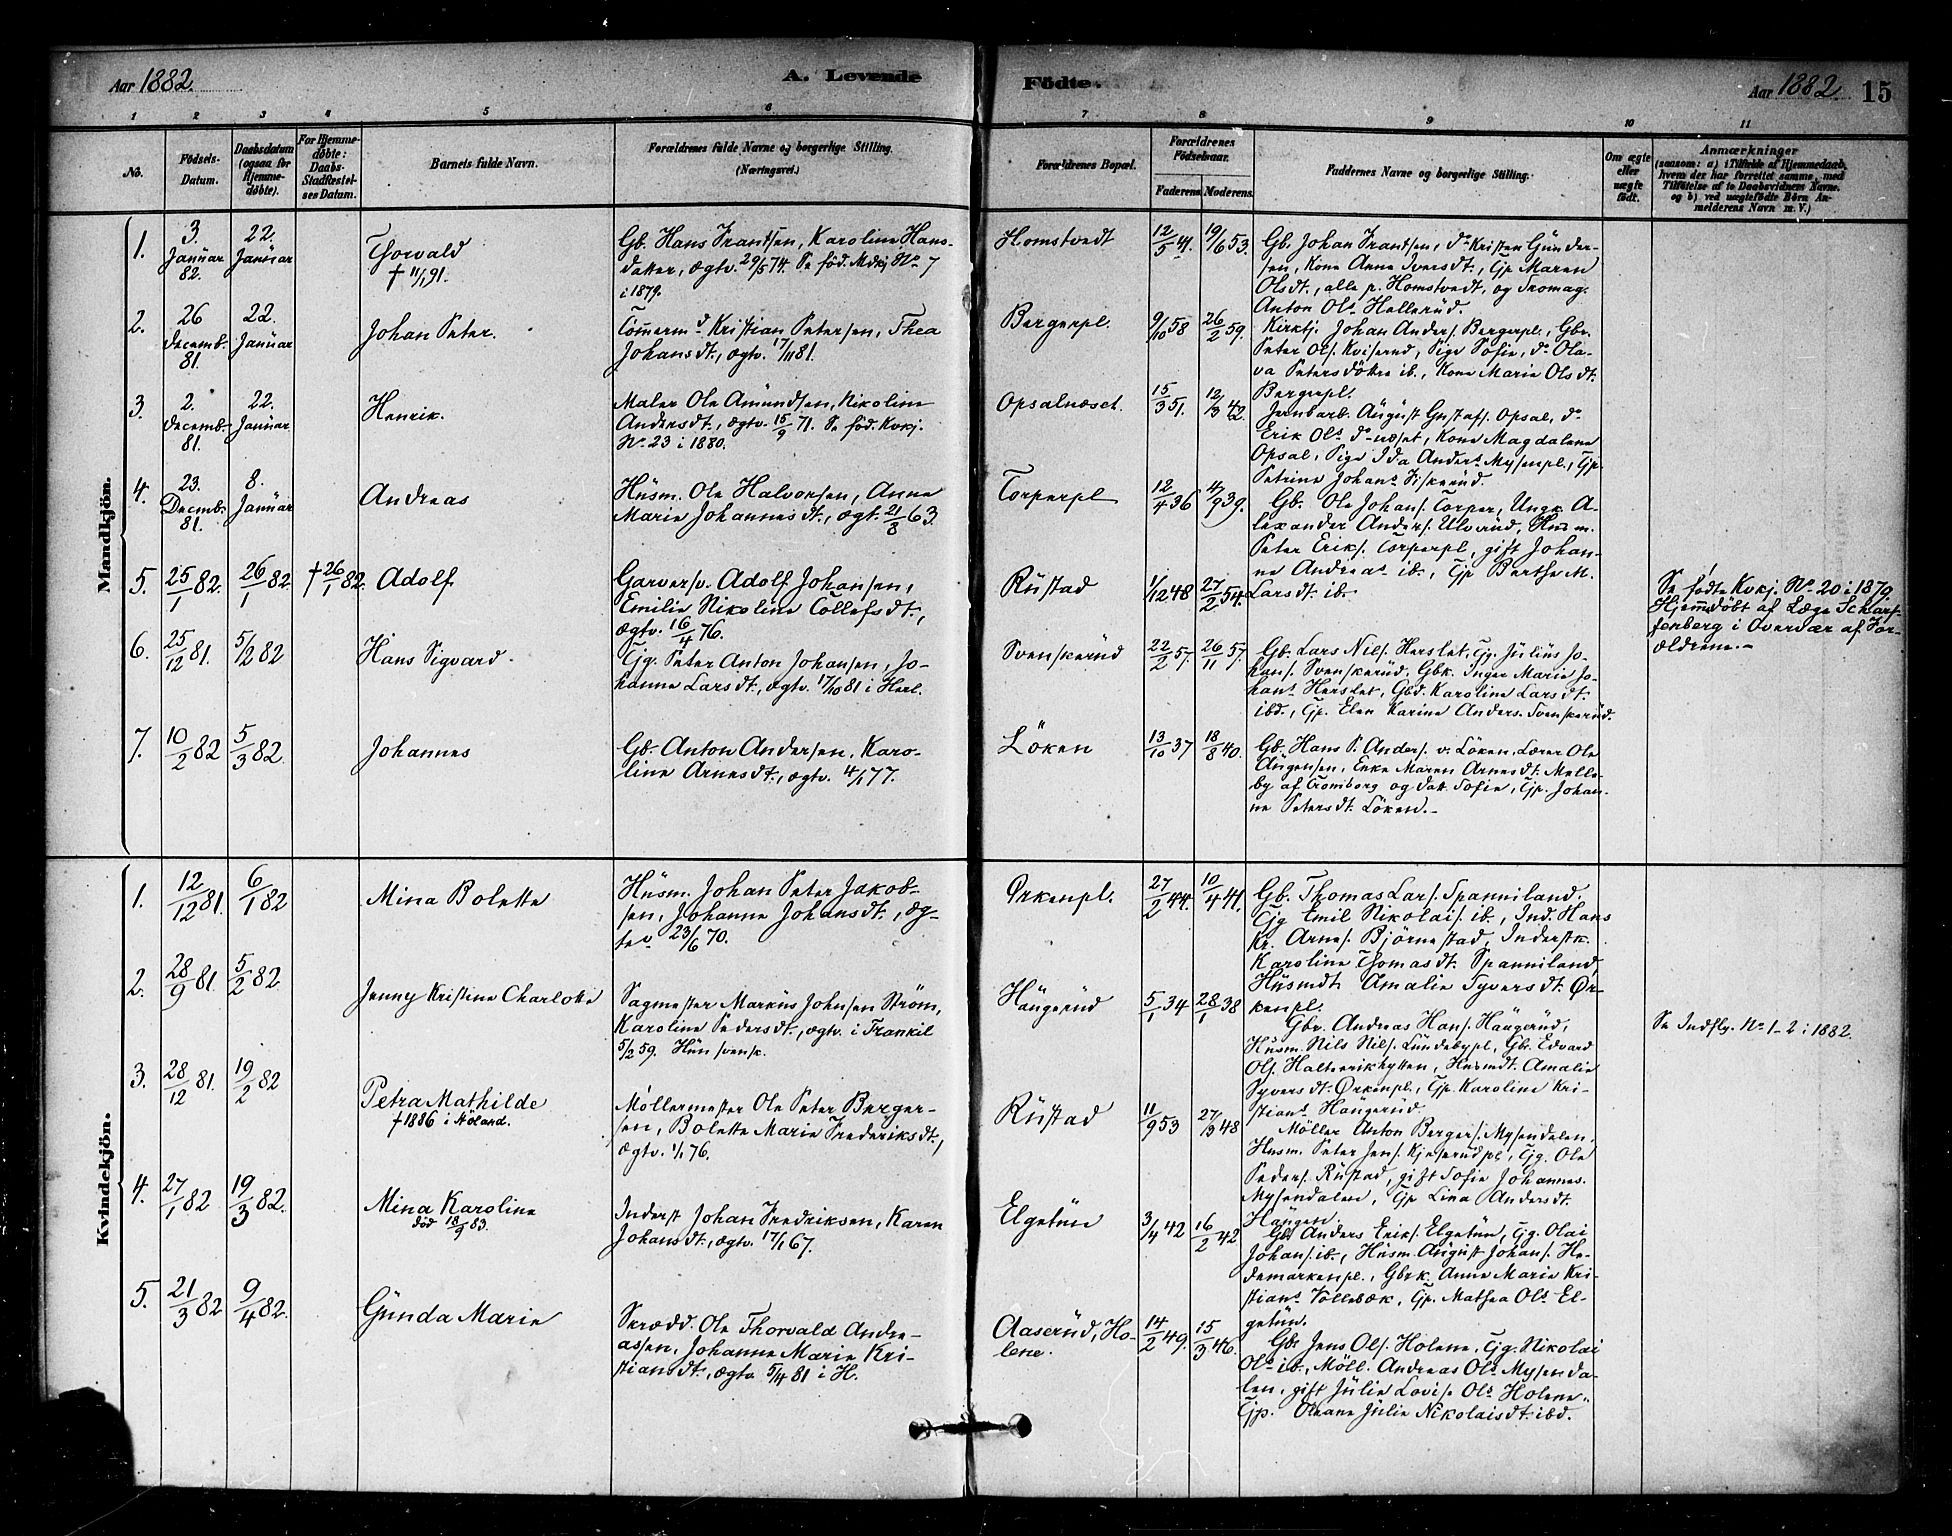 Aar 1882.
A. Levende Födte.
Aar 1882. 15
1 2 3 4 5 6 7 8 9 10 11
No.
Födsels-
Datum.
Daabsdatum
(ogsaa for
Hjemme-
döbte).
For Hjemme-
döbte:
Daabs-
Stadfæstel-
ses Datum.
Barnets fulde Navn.
Forældrenes fulde Navne og borgerlige Stilling.
(Næringsvei.)
Forældrenes Bopæl.
Forældrenes
Födselsaar.
Faderens. Moderens.
Faddernes Navne og borgerlige Stilling.
Om ægte
eller
uægte
født.
Anmærkninger
(saasom: a) i Tilfælde af Hjemmedaab,
hvem der har forrettet samme, med
Tilføielse af to Daabsvidners Navne.
og b) ved uægtefødte Börn An-
melderens Navn m. V.)
Mandkjön.
1.
3.
Januar
82.
22.
Januar
Thorvald
† 11/1 91.
Gb. Hans Frantsen, Karoline Hans-
datter, ægtv. 29/5 74. Se föd. Mdkj No 7
i 1879.
Homstvedt
12/5 41.
19/6 53.
Gb. Johan Frantsen, do Kristen Gunder-
sen, Kone Anne Iversdt., Gp Maren
Olsdt., alle p. Homstvedt, og Fromag.
Anton Ols. Hellerud.
2.
26
Decemb.
81.
22.
Januar
Johan Peter.
Tömermd Kristian Petersen, Thea
Johansdt., ægtv. 17/11 81.
Bergerpl.
9/10 58
26/2 59.
Kirktj. Johan Anders. Bergerpl., Gbr.
Peter Ols. Kviserud, Pige Sofie, do Ola-
va Petersdöttre ib., Kone Marie Olsdt.
Bergerpl.
3.
2.
Decemb.
81.
22.
Januar
Henrik.
Maler Ole Amundsen, Nikoline
Andersdt., ægtv. 15/9 71. Se föd. Kvkj.
No 23 i 1880.
Opsalneset.
15/3 51.
12/3 42.
Jernbarb. August Gustafs. Opsal, do
Erik Ols do-neset, Kone Magdalene
Opsal, Pige Ida Anders Mysenpl., Gp.
Petrine Johans Fiskerud.
4.
23.
Decmb.
81.
8.
Januar
Andreas
Husm. Ole Halvorsen, Anne
Marie Johannesdt., ægt. 21/3 63.
Torperpl
12/4 36
4/9 39.
Gb. Ole Johans. Torper, Ungk. A-
lexander Anders. Ulverud, Husm.
Peter Eriks. Torperpl, gift Johan-
ne Andreas ib., Gp Berthe M.
Larsdt. ib.
5.
25/1 82.
26/1 82.
† 26/1 82.
Adolf
Garversv. Adolf Johansen,
Emilie Nikoline Tollefsdt.,
ægtv. 16/4 76.
Rustad
1/12 48
27/2 54.
Se födte Kvkj. No 20 i 1879.
Hjemmedöbt af Læge Scharf-
fenberg i Overvær af For-
ældrene.-
6.
25/12 81.
5/2 82
Hans Sigvard.
Gg. Peter Anton Johansen, Jo-
hanne Larsdt., ægtv. 17/10 81 i Herl.
Svenskerud
22/2 57.
26/11 57.
Gb. Lars Nils. Herslet, Gg. Julius Jo-
hans. Svenskerud, Gbk. Inger Marie Jo-
hans Herslet, Gbd. Karoline Larsdt.
ibd., Gp. Elen Karine Anders. Svenskerud.
7.
10/2 82
5/3 82.
Johannes
Gb. Anton Andersen, Karo-
line Arnesdt., ægtv. 4/1 77.
Löken
13/10 37
18/8 40.
Gb. Hans P. Anders. v. Löken, Lærer Ole
Augensen, Enke Maren Arnesdt. Melle-
by af Tromborg og datt. Sofie, Gp. Johan-
ne Petersdt. Löken.-
Kvindekjön.
1.
12/12 81.
6/1 82
Mina Bolette
Husm. Johan Peter Jakob-
sen, Johanne Johansdt., æg-
tev. 23/6 70.
Ørkenpl.
27/2 44.
10/4 41.
Gb. Thomas Lars. Spanniland.
Gg Emil Nikolais. ib., Ind. Hans
Kr. Arnes. Björnestad, Inderstk.
Karoline Thomasdt. Spanniland,
Husmdt. Amalie Syversdt. Ør-
kenpl.
2.
28/9 81.
5/2 82.
Jenny Kristine Charlotte
Sagmester Markus Johnsen Ström,
Karoline Pedersdt., ægtv. i Frankil
5/2 59. Hun svensk.
Haugerud
5/1 34
28/1 38
Gbr. Andreas Hans. Haugerud,
Husm. Nils Nils. Lundebypl, Gbr. Edvard
Ols. Haltvorikhytten, Husmdt. Amalie
Syversdt. Ørkenpl., Gp. Karoline Kri-
stians. Haugerud
Se Indfly. No 1-2 i 1882.
3.
28/12 81.
19/2 82
Petra Mathilde
† 1886 i Höland.
Möllermester Ole Peter Berger-
sen, Bolette Marie Frederiksdt.,
ægtv. 1/1 76.
Rustad
11/9 53
27/3 48
Möller Anton Bergers. Mysendalen,
Husm. Peter Jens. Kjeserudpl, Gg. Ole
Peders. Rustad, gift Sofie Johannes.
Mysendalen, Gp Lina Andersdt.
Haugen.
4.
27/1 82
19/3 82.
Mina Karoline
död 18/9 83.
Inderst Johan Fredriksen, Karen
Johansdt., ægtv. 17/1 67.
Elgetun
3/4 42
16/2 42
Gb. Anders Eriks. Elgetun, Gg. Olai
Johans. ib., Husm. August Johans. He-
demarkenpl., Gbrk. Anne Marie Kri-
stians Vollebæk, Gp. Mathea Ols El-
getun.
5.
21/3 82
9/4 82.
Gunda Marie
Skrædd. Ole Thorvald Andre-
assen, Johanne Marie Kri-
stiansdt., ægtv. 5/4 81 i H.
Aaserud, Ho-
lene.
14/2 49.
15/3 46.
Gbr Jens Ols. Holene, Gg. Nikolai
Ols ib., Möll. Andreas Ols Mysenda-
len, gift Julie Lovise Ols Holene.
Gp. Oleane Julie Nikolaisdt. ibd.